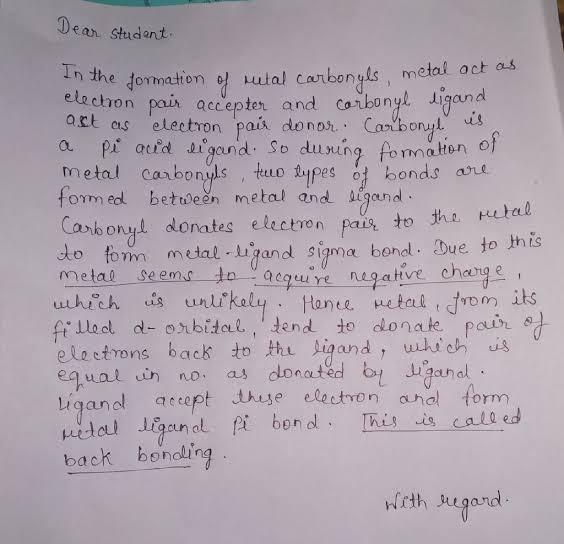 Dear student.
In the formation of metal carbonyls, metal act as
electron pair accepter and carbonyl ligand
act as electron pair donor. Carbonyl is
a pi acid ligand. So during formation of
metal carbonyls, two types of bonds are
formed between metal and ligand.
Carbonyl donates electron pair to the metal
to form metal-ligand sigma bond. Due to this
metal seems to acquire negative charge,
which is unlikely. Hence metal, from its
filled d-orbital, tend to donate pair of
electrons back to the ligand, which is
equal in no. as donated by ligand.
ligand accept these electron and form
metal ligand pi bond. This is called
back bonding.
With regard.